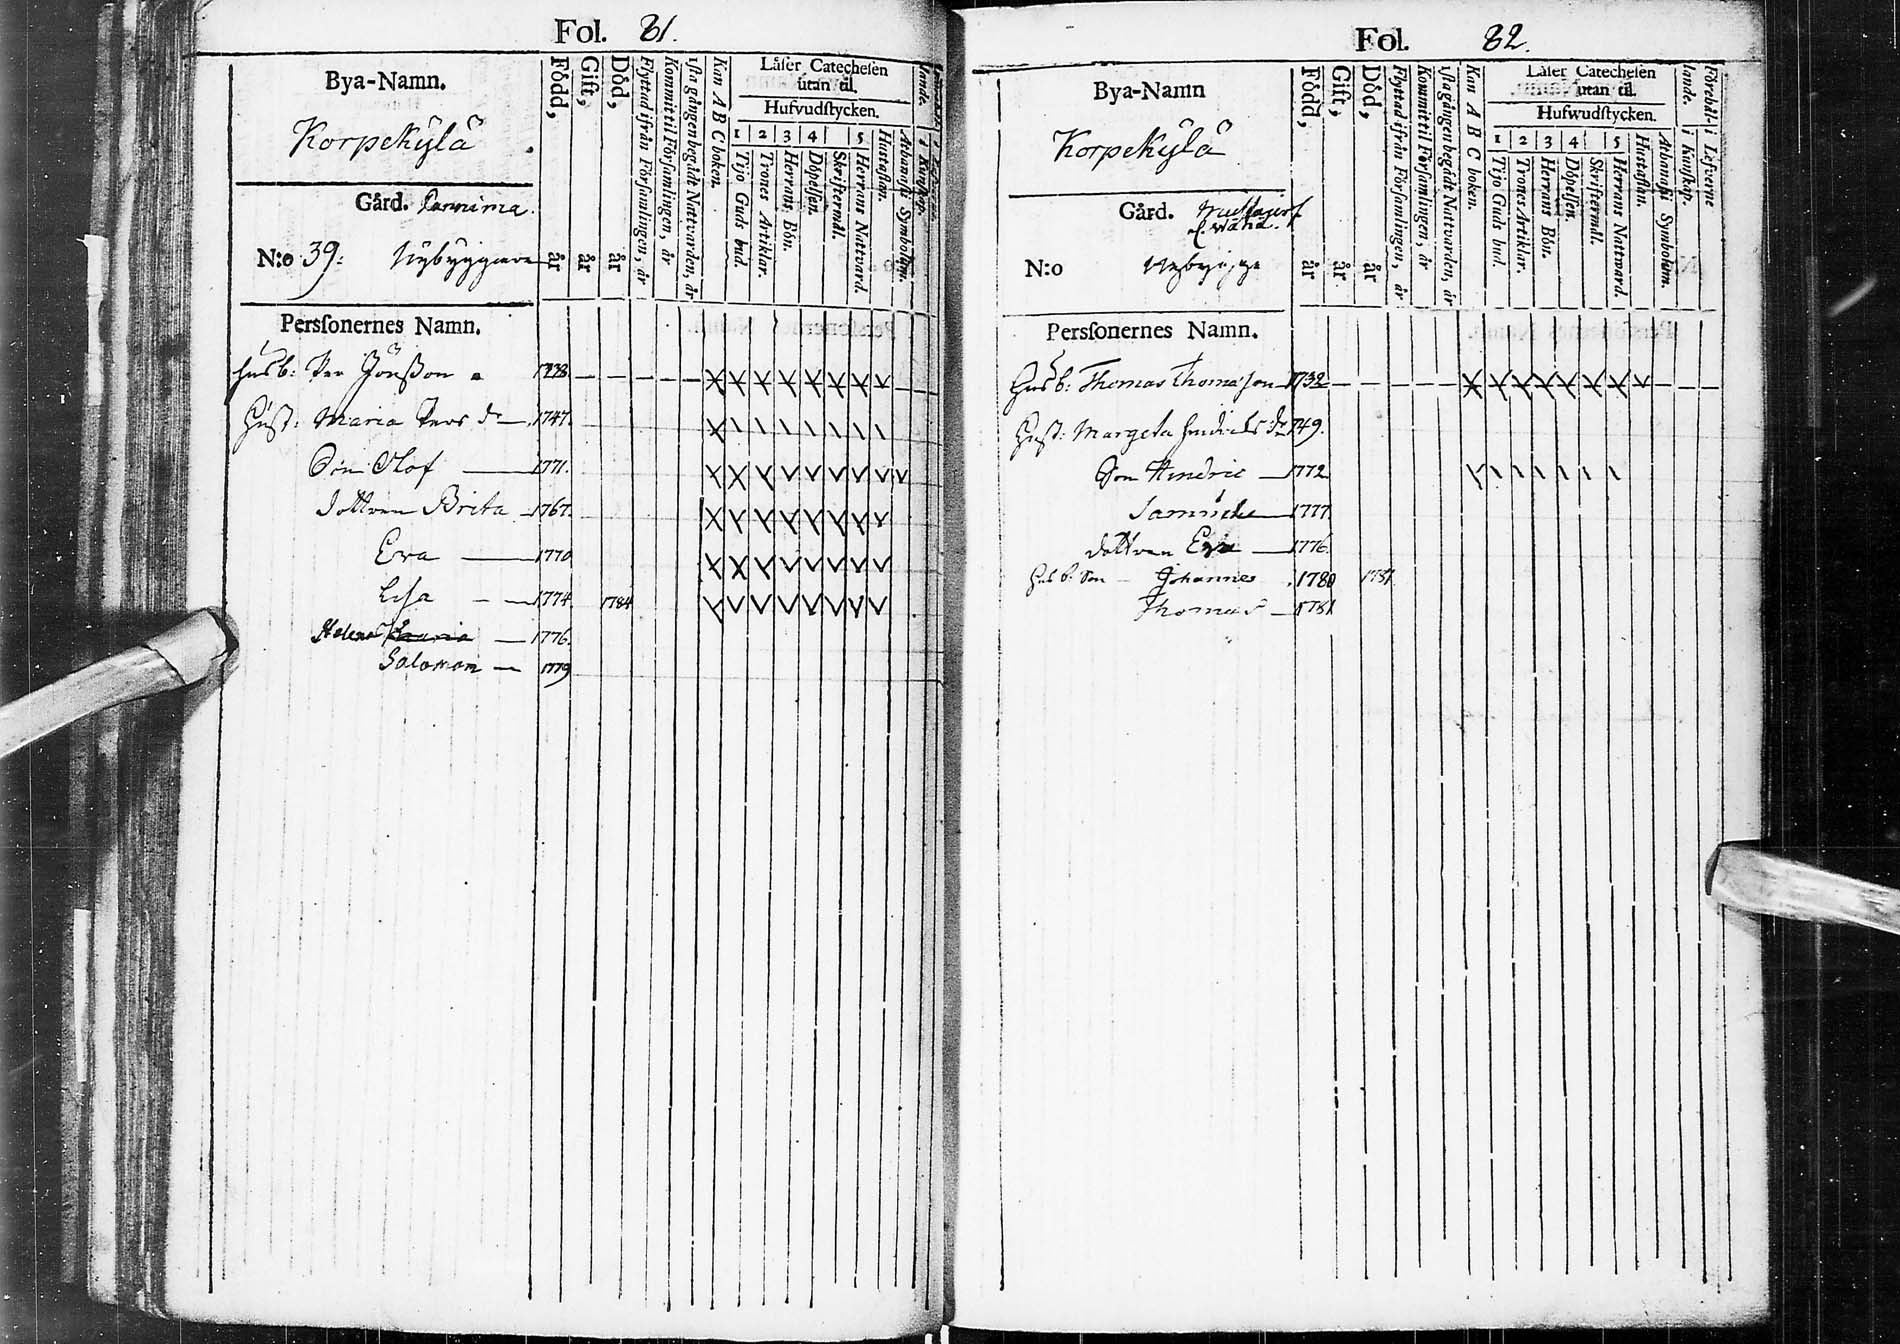 Fol. 81.
Bya-Namn.
Korpekÿlä
Gård. Pannima.
N:o 39: Nÿbyggare
Född, år
Gift, år
Död, år
Flyttad ifrån Församlingen, år
Kommit til Församlingen, år
1sta gången begådt Nattvarden, år
Kan A B C boken.
Läser Catechesen
utan til.
Hufvudstycken.
1 2 3 4 5
Tijo Guds bud.
Trones Artiklar.
Herrans Bön.
Döpelsen.
Skriftermål.
Herrans Nattvard.
Hustaflan.
Athanasii Symbolum.
Personernes Namn.
Husb: Per Jönsson 1738
Hust: Maria Pers dr 1747.
Son Olof 1771.
dottren Brita 1767.
Eva 1770
Lisa 1774 1784
Helena Maria 1776.
Salomon 1779
Fol. 82.
Bya-Namn
Korpekÿlä
Gård.
N:o Nybygge
Född, år
Gift, år
Död, år
Flyttad ifrån Församlingen, år
Kommit til Församlingen, år
1sta gången begådt Nattvarden, år
Kan A B C boken.
Läser Catechesen
utan til.
Hufwudstycken.
1 2 3 4 5
Tijo Guds bud.
Trones Artiklar.
Herrans Bön.
Döpelsen.
Skriftermål.
Herrans Nattvard.
Hustaflan.
Athanasii Symbolum.
i Kunskap.
i Lefverne
Förehållande.
Personernes Namn.
Husb: Thomas Thomasson 1732
Hust: Margeta Hindrics dr 1749.
Son Hindric 1772
1777
dottren Eva 1776.
Husb: Son Johannes 1780 1781
Thomas 1781